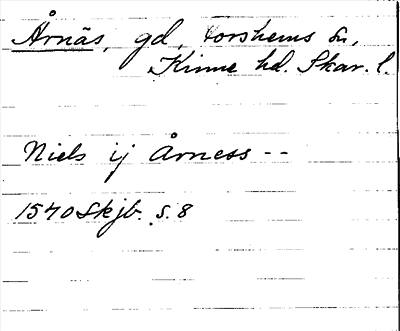 Årnäs, gd, Forshems sn,
Kinne hd. Skar. l.
Niels ij Årness --
1540 Skjb. s. 8